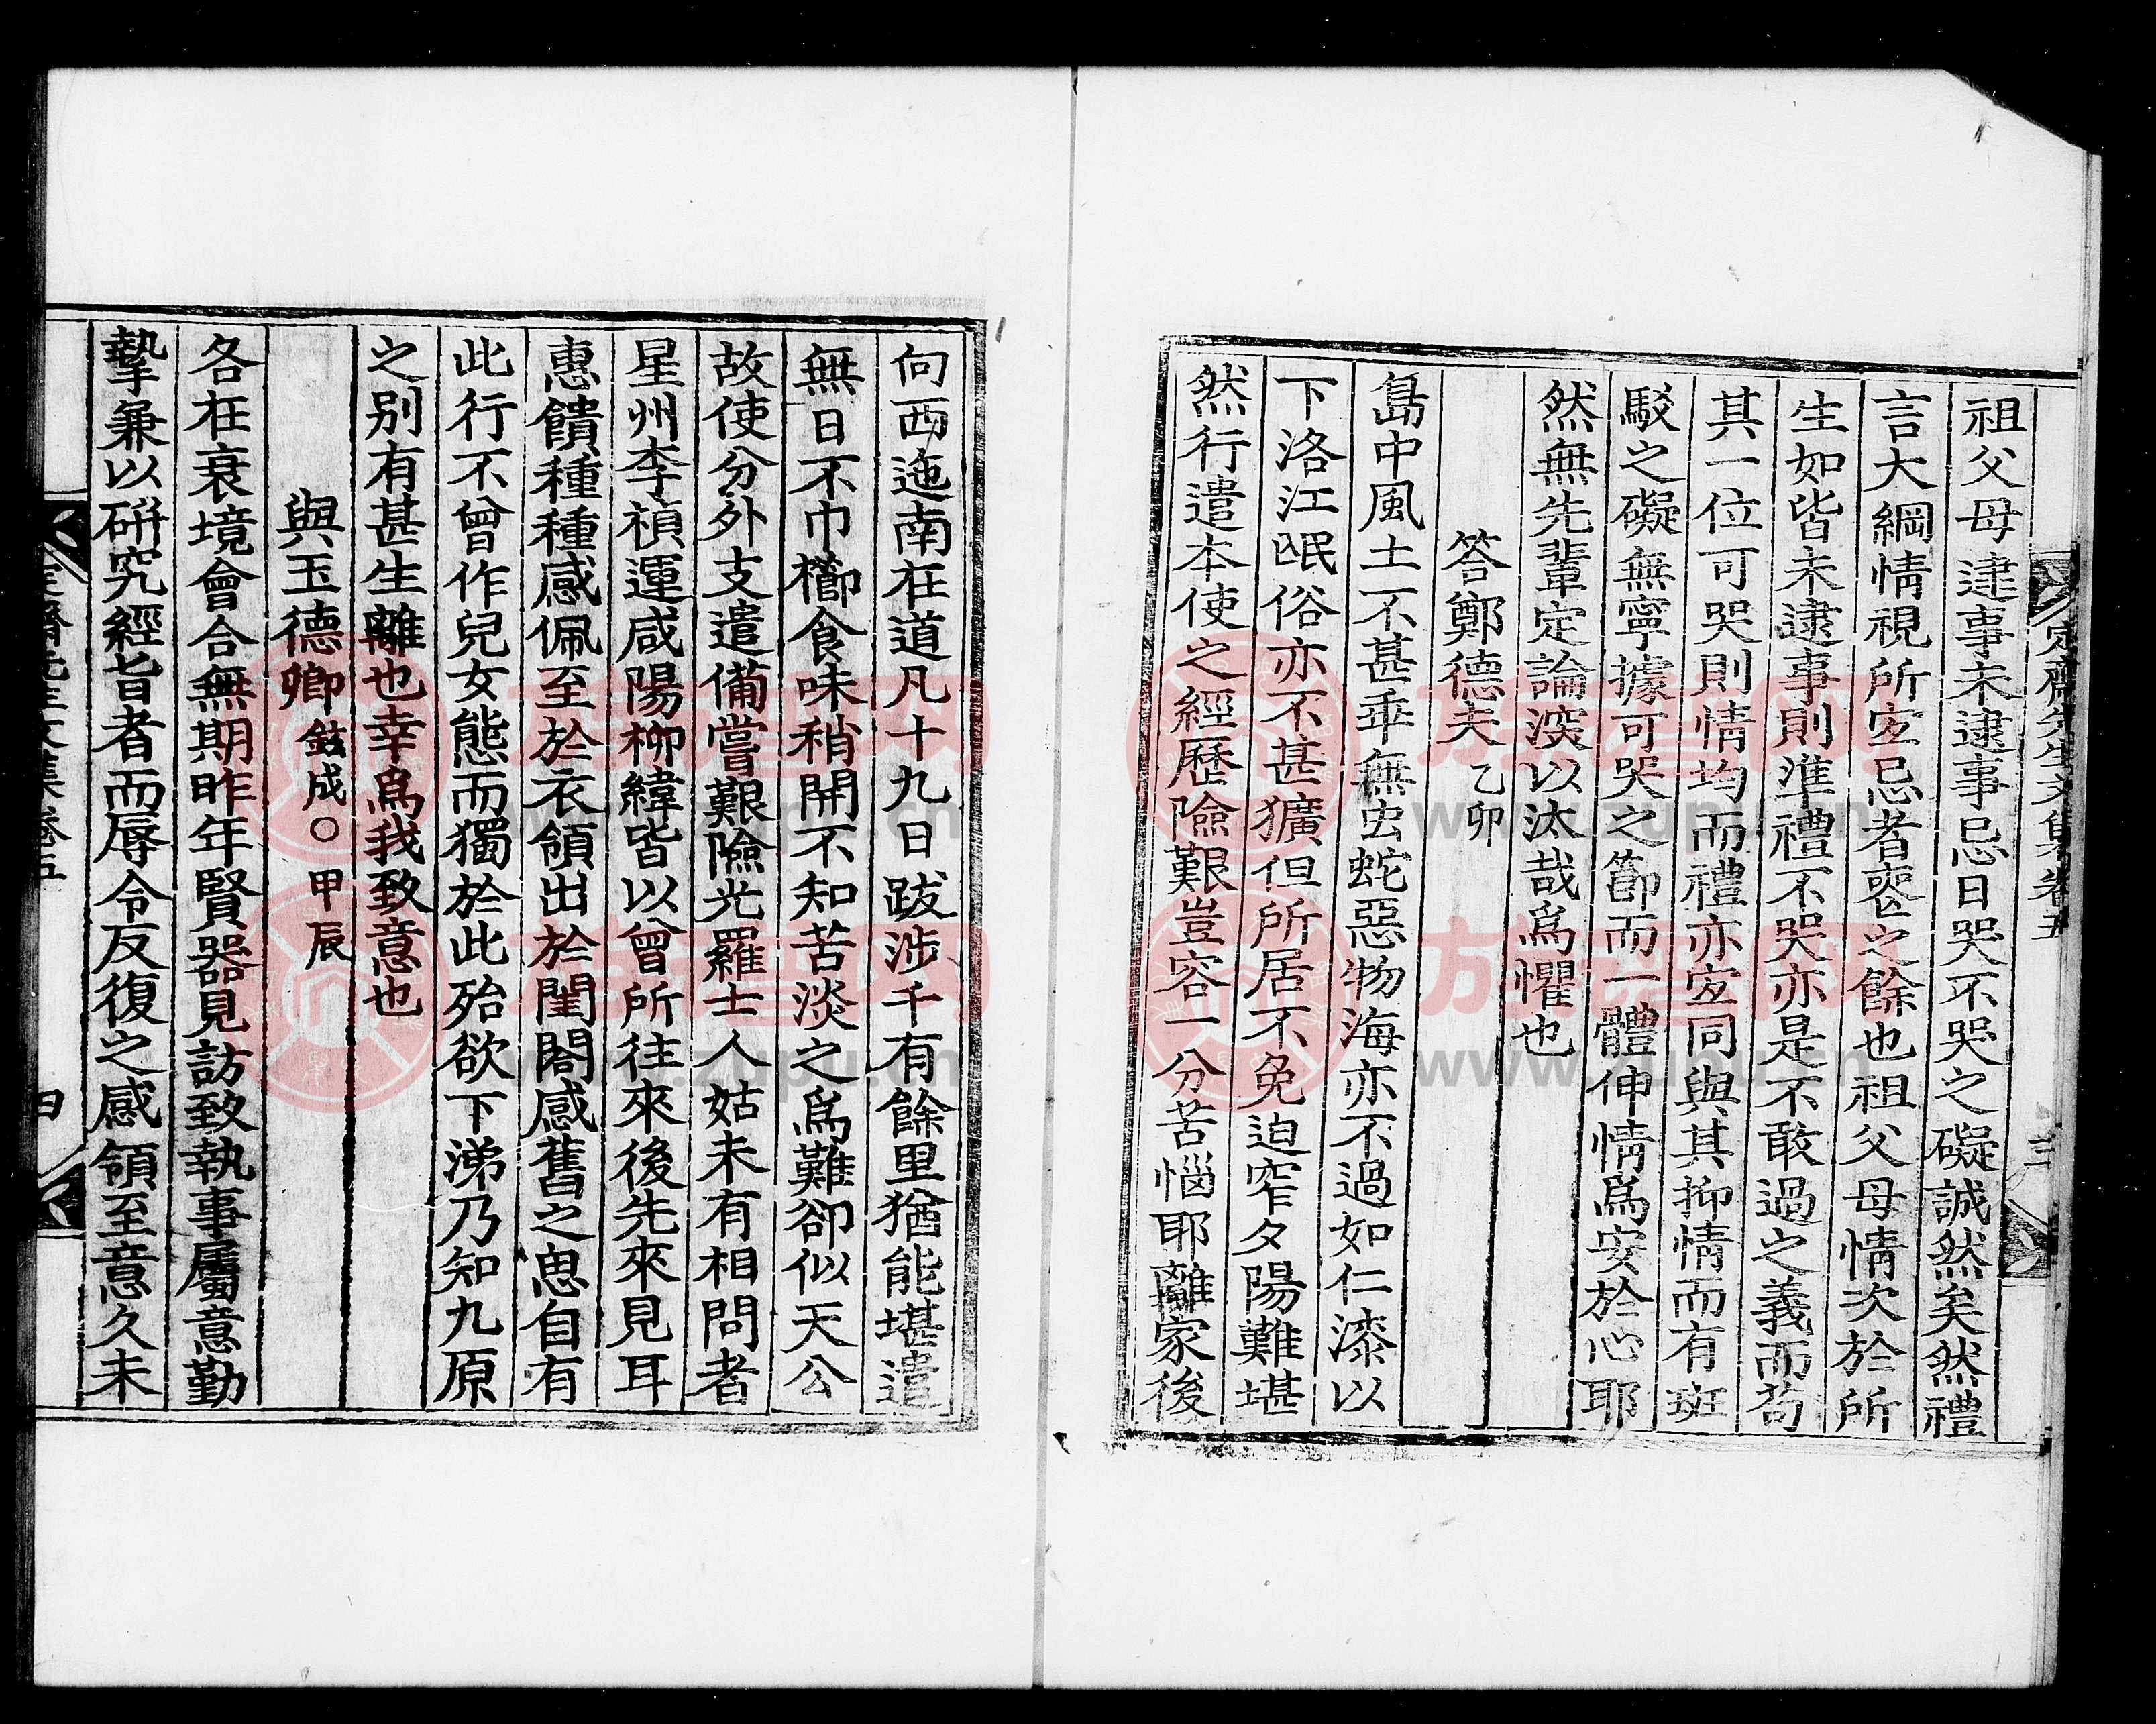 定齋先生文集卷五
三
祖父母逮事未逮事忌日哭不哭之礙誠然矣然禮
言大綱情視所宜忌者喪之餘也祖父母情次於所
生如皆未逮事則準禮不哭亦是不敢過之義而苟
其一位可哭則情均而禮亦宜同與其抑情而有班
駁之礙無寧據可哭之節而一體伸情爲安於心耶
然無先輩定論深以汰哉爲懼也
答鄭德夫乙卯
島中風土不甚乖無虫蛇惡物海亦不過如仁漆以
下洛江氓俗亦不甚獷但所居不免迫窄夕陽難堪
然行遣本使之經歷險艱豈容一分苦惱耶離家後
向西迤南在道凡十九日跋涉千有餘里猶能堪遣
無日不巾櫛食味稍開不知苦淡之爲難卻似天公
故使分外支遣備嘗艱險光羅士人姑未有相問者
星州李禎運咸陽柳緯皆以曾所往來後先來見耳
惠饋種種感佩至於衣領出於閨閤感舊之思自有
此行不曾作兒女態而獨於此殆欲下涕乃知九原
之別有甚生離也幸爲我致意也
與玉德卿鉉成○甲辰
各在衰境會合無期昨年賢器見訪致執事屬意勤
摯兼以硏究經旨者而辱令反復之感領至意久未
定齋先生文集卷五
四
族譜网
www.zupu.cn
族譜网
www.zupu.cn
族譜网
www.zupu.cn
族譜网
www.zupu.cn